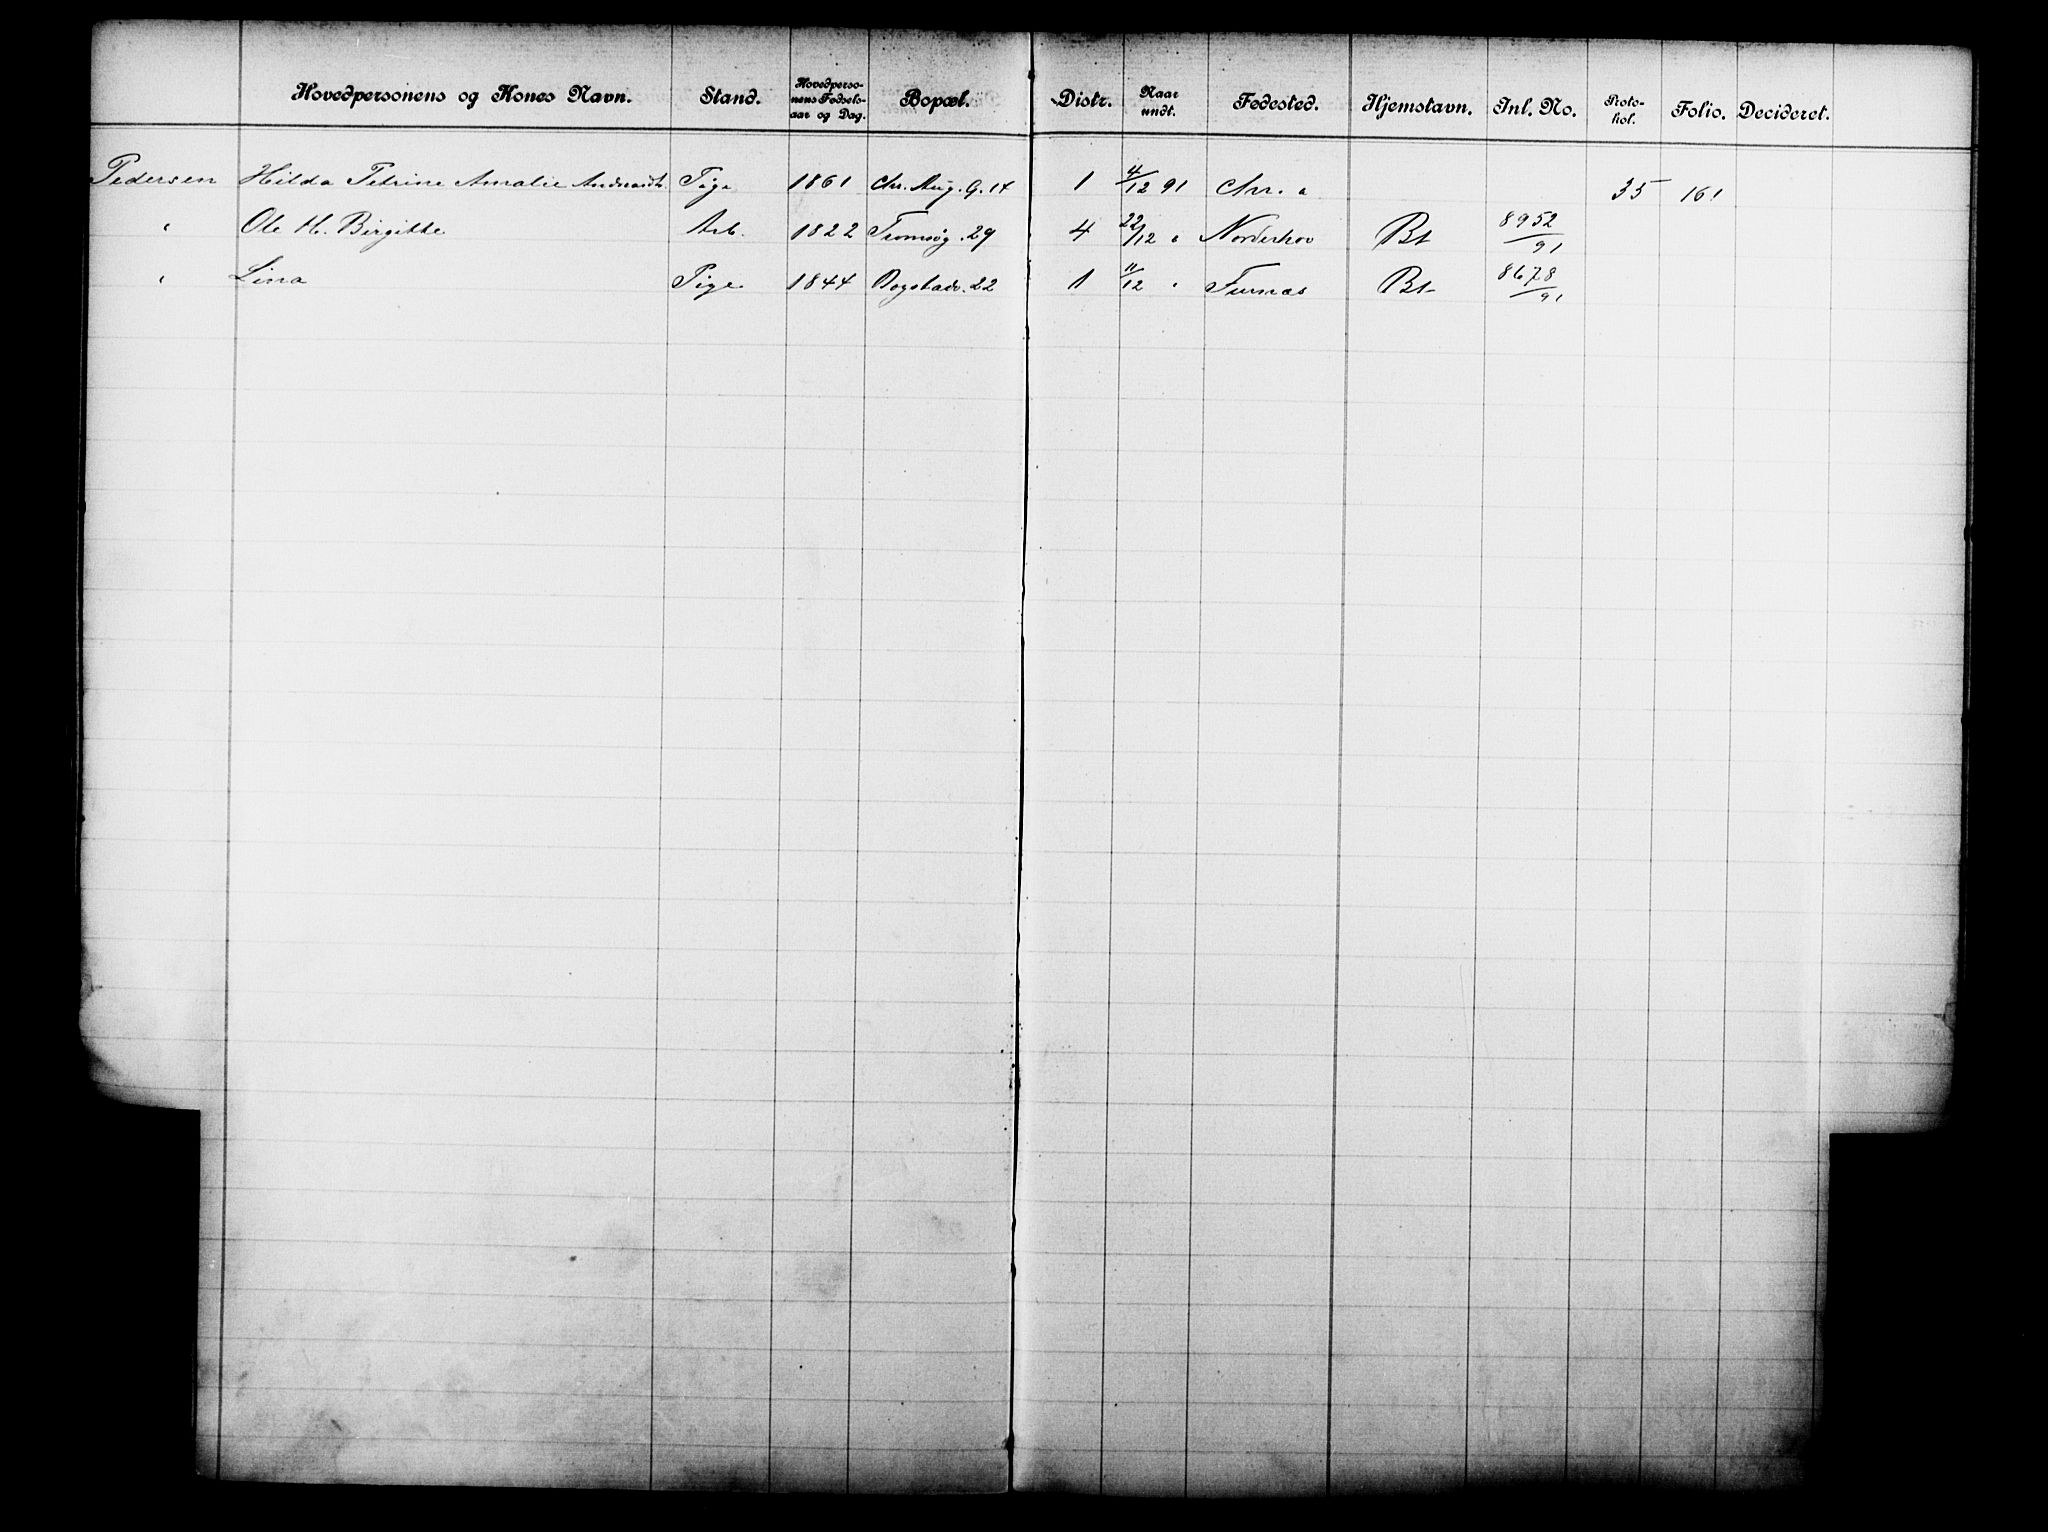 Hovedpersonens og Kones Navn. Stand. Hovedperso-nens Fødsels-aar og Dag. Bopæl. Distr. Naar undt. Fødested. Hjemstavn. Inl. No. Proto-kol. Folio. Decideret.
Pedersen Hilda Petrine Amalie Pige 1861 Chr. Aug. G. 14 1 4/12 91 Chr. a 35 161
" Ole H. Birgitte Arb. 1822 Tromsøg. 29 4 22/12 " Norderhov Bt 8952/91
" Lina Pige 1844 Bogstadv. 22 1 11/12 " Furnæs Bt 8678/91